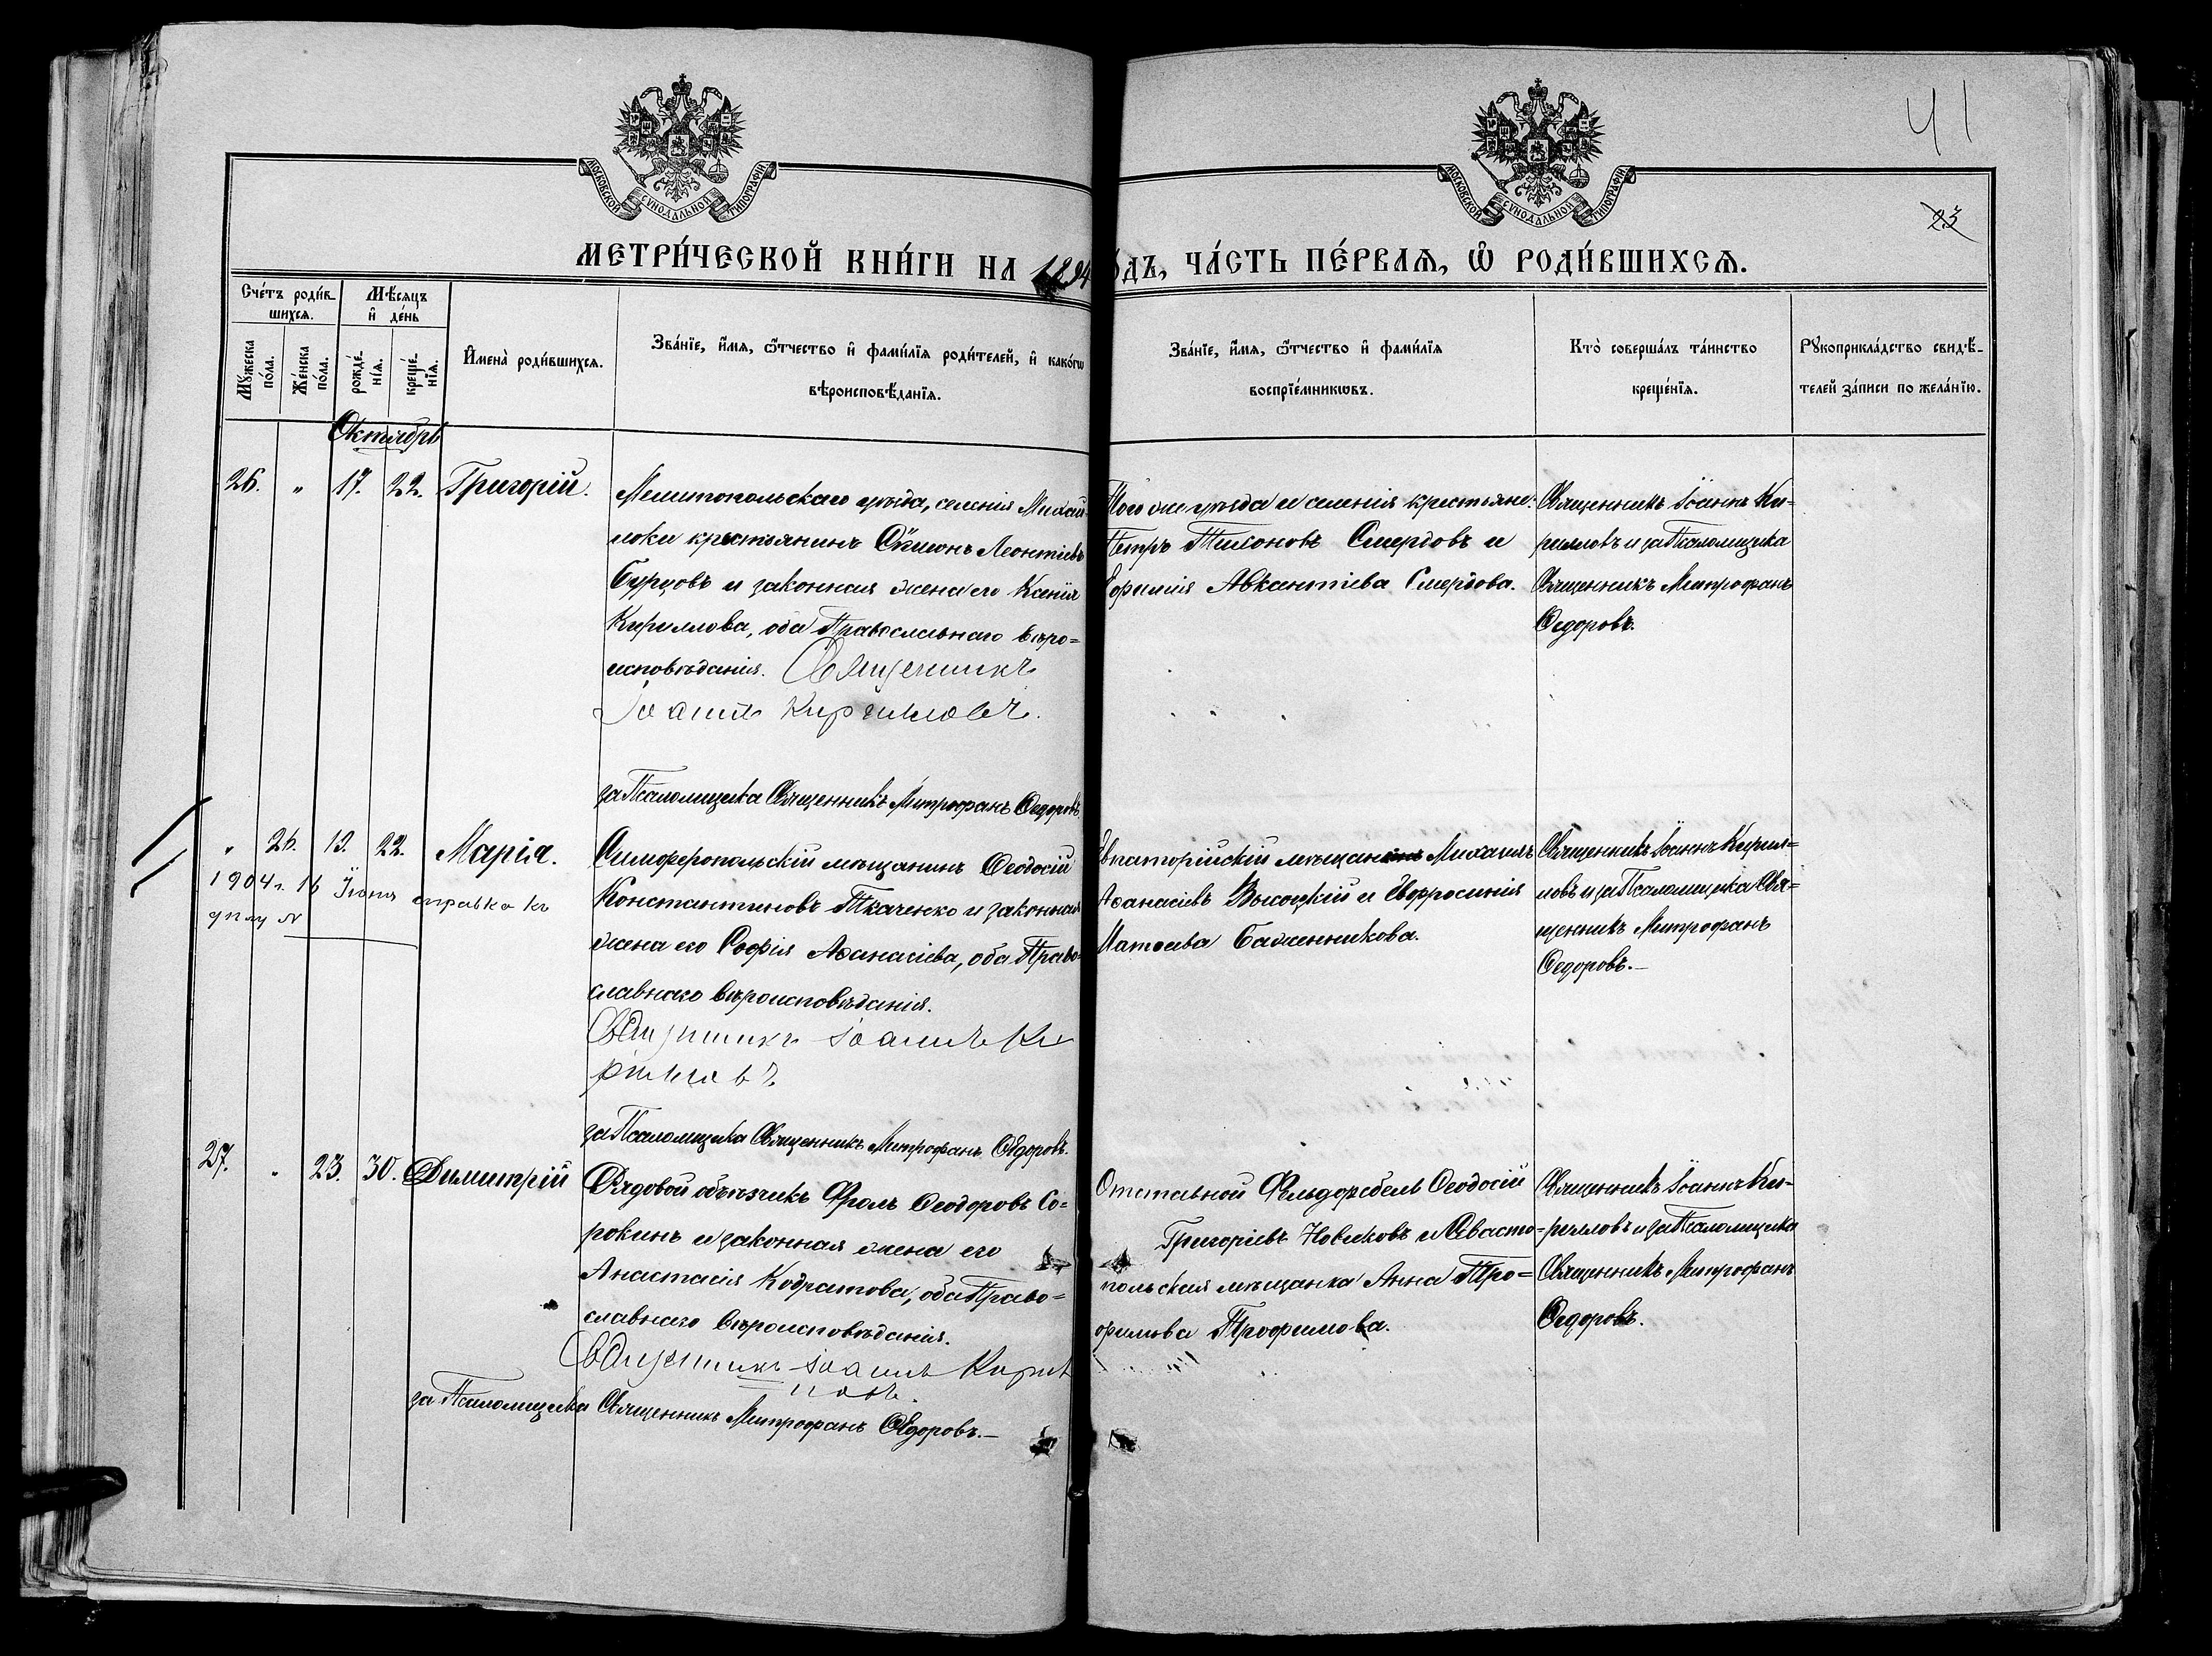 41
23
МОСКОВСКОЙ СУНОДАЛЬНОЙ ТИПОГРАФІИ
МОСКОВСКОЙ СУНОДАЛЬНОЙ ТИПОГРАФІИ
МЕТРИ́ЧЕСКОЙ КНИ́ГИ НА 1894
ОДЪ, ЧА́СТЬ ПЕ́РВАѦ, Ѿ РОДИ́ВШИХСѦ.
Сче́тъ роди́в-
шихсѧ.
Мꙋжеска по́ла.
Же́нска по́ла.
Мѣ́сѧцъ и҆ де́нь
рожде́-
нїѧ.
креще́-
нїѧ.
И҆мена̀ роди́вшихсѧ.
Зва́нїе, и҆́мѧ, ѻ҆́тчество и҆ фами́лїѧ роди́телей, и҆ како́гѡ
вѣроисповѣ́данїѧ.
Зва́нїе, и҆́мѧ, ѻ҆́тчество и҆ фами́лїѧ
воспрїе́мникѡвъ.
Кто̀ соверша́лъ та́инство
креще́нїѧ.
Рꙋкоприкла́дство свидѣ́-
телей за́писи по жела́нїю.
Октябрь
26. " 17. 22. Григорій.
Мелитопольскаго уѣзда, селенія Михай-
ловки крестьянинъ Симеонъ Леонтіевъ
Бурцовъ и законная жена его Ксенія
Кириллова, оба Православнаго вѣро=
исповѣданія. Священникъ
Іоаннъ Кирилловъ.
за Псаломщика Священникъ Митрофанъ Ѳедоровъ.
Того же уѣзда и селенія крестьяне:
Петръ Тихоновъ Смердовъ и
Ефимія Авксентіева Смердова.
Священникъ Іоаннъ Ки-
рилловъ и за Псаломщика
Священникъ Митрофанъ
Ѳедоровъ.
" 26. 19. 22. Марія.
1904 г. 16 Іюня справка къ
дѣлу №
Симферопольскій мѣщанинъ Ѳеодосій
Константиновъ Ткаченко и законная
жена его Софія Аѳанасіева, оба Право-
славнаго вѣроисповѣданія.
Священникъ Іоаннъ Ки
рилловъ
за Псаломщика Священникъ Митрофанъ Ѳедоровъ.
Евпаторійскій мѣщанинъ Михаилъ
Аѳанасіевъ Высоцкій и Евфросинія
Матѳеева Баженникова.
Священникъ Іоаннъ Кирил=
ловъ и за Псаломщика Свя=
щенникъ Митрофанъ
Ѳедоровъ.—
27. " 23. 30. Димитрій
Рядовой объѣзчикъ Фролъ Ѳеодоровъ Со=
рокинъ и законная жена его
Анастасія Кодратова, оба Право=
славнаго вѣроисповѣданія.
Священникъ Іоаннъ Кирил
ловъ.
за Псаломщика Священникъ Митрофанъ Ѳедоровъ.—
Отставной Фельдфебель Ѳеодосій
Григоріевъ Новиковъ и Севасто=
польская мѣщанка Анна Тро=
фимова Трофимова.
Священникъ Іоаннъ Ки-
рилловъ и за Псаломщика
Священникъ Митрофанъ
Ѳедоровъ.